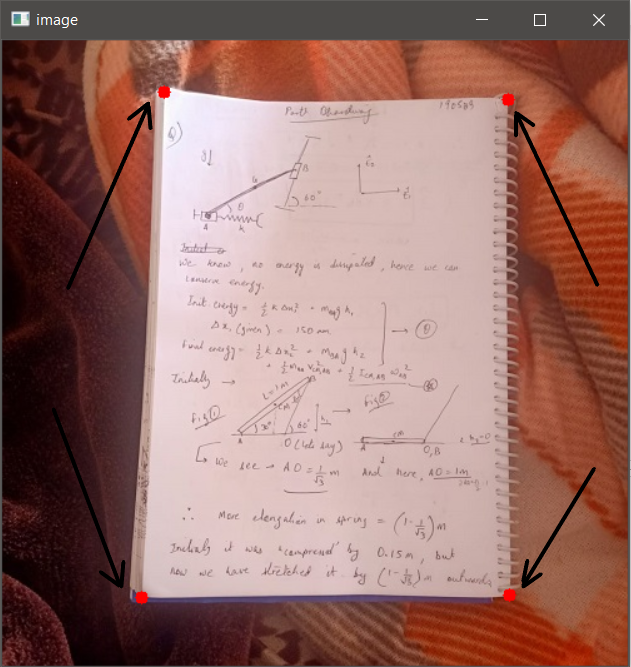 image
190589
Q)
g↓
B
G
60°
θ
A
k
We know, no energy is dissipated, hence we can
conserve energy.
Init energy = ½ k Δx₁² + m_AB g h₁
Δx₁ (given) = 150 mm
Final energy = ½ k Δx₂² + m_BA g h₂
+ ½ m_AB V²_CM,AB + ½ I_CM,AB ω²_AB
Initially →
L=1m
Fig ①
30°
60°
A
O (lets say)
h₁
Fig ②
cm
A
O,B
h₂=0
We see → AO = 1/√3 m And here, AO = 1m
∴ More elongation in spring = (1 - 1/√3) m
Initially it was "compressed" by 0.15m, but
now we have stretched it by (1 - 1/√3) m outwards